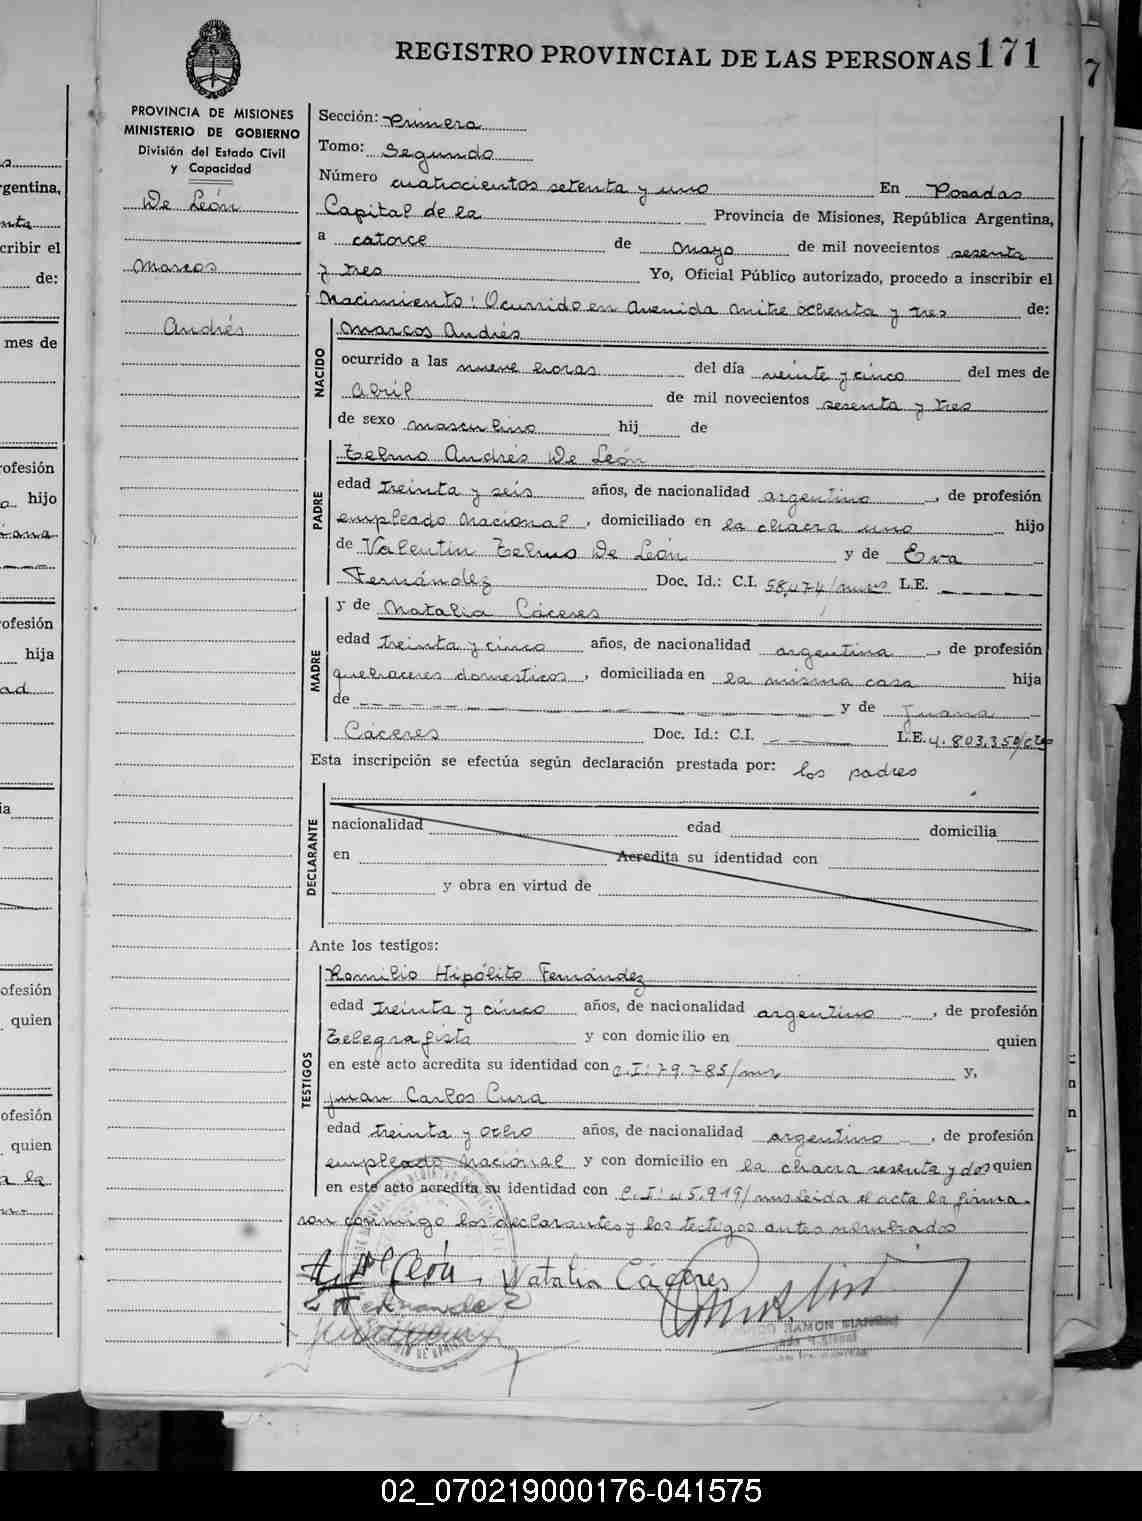 REGISTRO PROVINCIAL DE LAS PERSONAS 171
PROVINCIA DE MISIONES
MINISTERIO DE GOBIERNO
División del Estado Civil
y Capacidad
De León
Marcos
Andrés
Sección: Primera
Tomo: Segundo
Número cuatrocientos setenta y uno En Posadas
Capital de la Provincia de Misiones, República Argentina,
a catorce de mayo de mil novecientos sesenta
y tres Yo, Oficial Público autorizado, procedo a inscribir el
Nacimiento: Ocurrido en Avenida Mitre ochenta y tres de:
NACIDO
Marcos Andrés
ocurrido a las nueve horas del día veinte y cinco del mes de
Abril de mil novecientos sesenta y tres
de sexo masculino hij de
PADRE
Telmo Andrés De León
edad treinta y seis años, de nacionalidad argentino, de profesión
empleado nacional, domiciliado en la chacra uno hijo
de Valentín Telmo De León y de Eva
Fernández Doc. Id.: C.I. 58.474/mnes L.E.
MADRE
y de Natalia Cáceres
edad treinta y cinco años, de nacionalidad argentina, de profesión
quehaceres domesticos, domiciliada en la misma casa hija
de y de Juana
Cáceres Doc. Id.: C.I. L.E. 4.803.359/
Esta inscripción se efectúa según declaración prestada por: los padres
DECLARANTE
nacionalidad edad domicilia
en Acredita su identidad con
y obra en virtud de
Ante los testigos:
TESTIGOS
Romilio Hipólito Fernández
edad treinta y cinco años, de nacionalidad argentino, de profesión
Telegrafista y con domicilio en quien
en este acto acredita su identidad con C.I: 79.785/mns y,
Juan Carlos Cura
edad treinta y ocho años, de nacionalidad argentino, de profesión
empleado nacional y con domicilio en la chacra sesenta y dos quien
en este acto acredita su identidad con C.I: 45.919/mns leida el acta la firma-
ron conmigo los declarantes y los testigos antes nombrados
De León Natalia Cáceres
Fernandez
RAMON
02_070219000176-041575